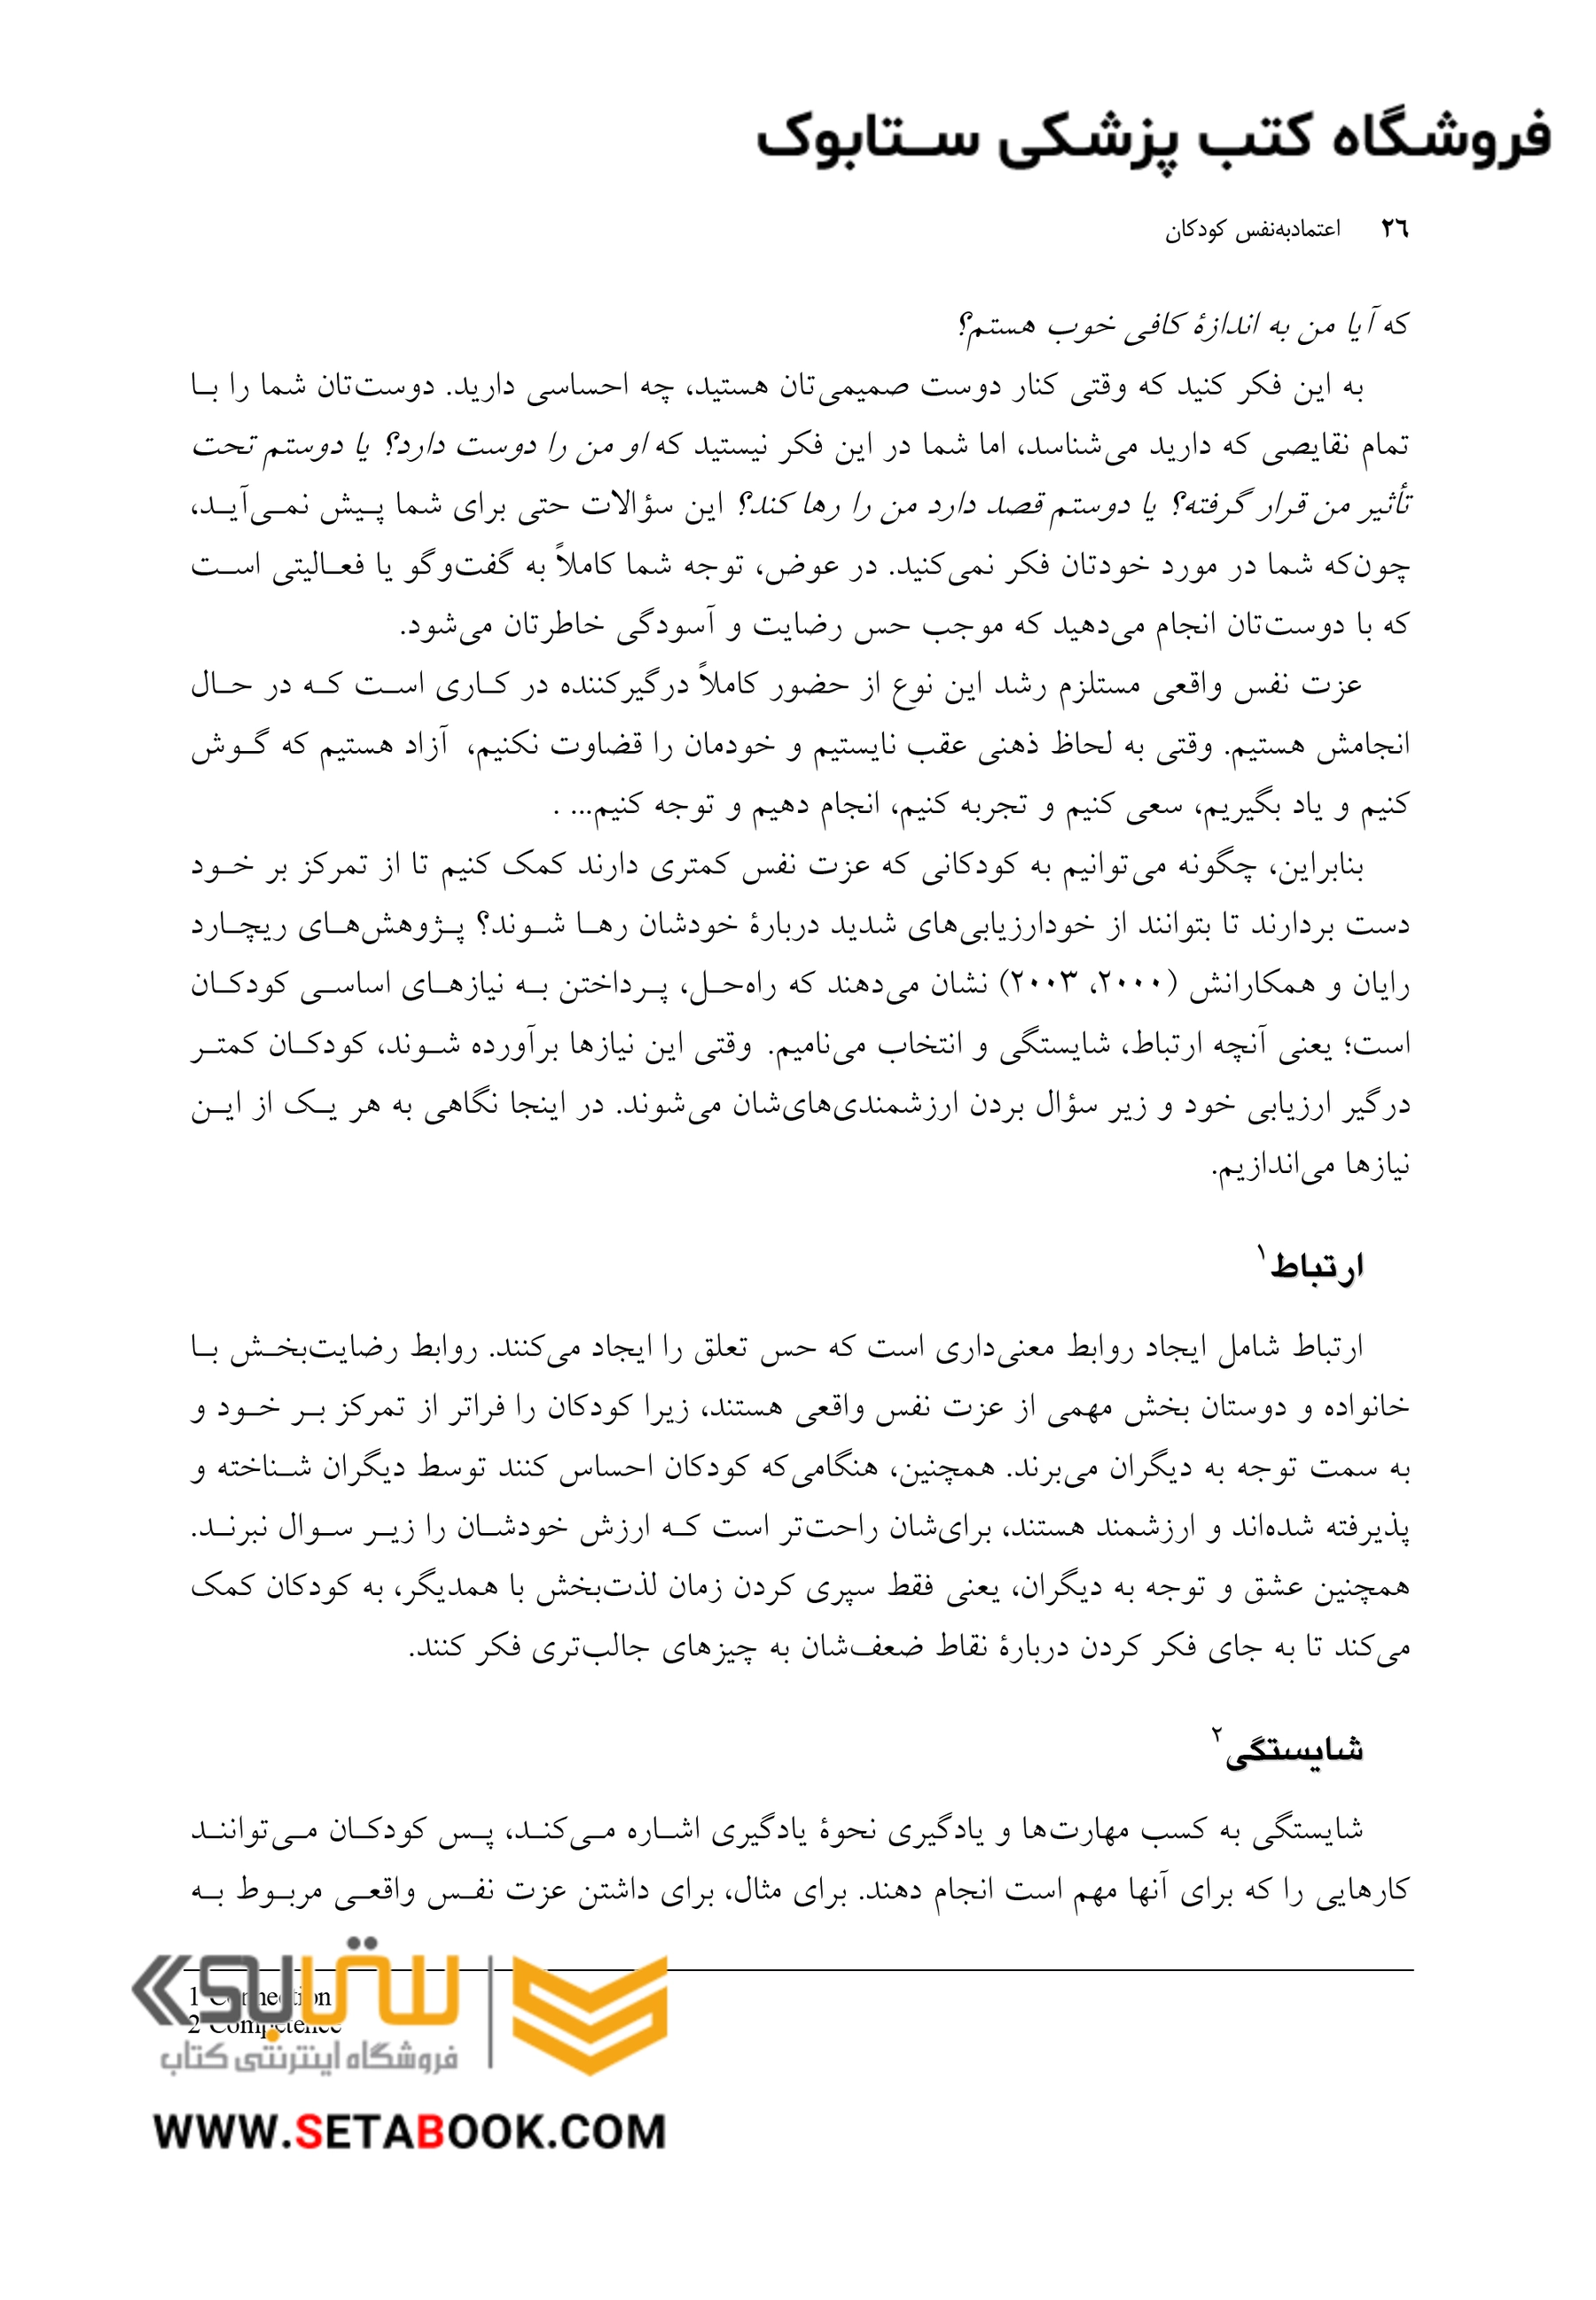 فروشگاه کتب پزشکی ستابوک
۲۶ اعتمادبه‌نفس کودکان
که آیا من به اندازۀ کافی خوب هستم؟
به این فکر کنید که وقتی کنار دوست صمیمی‌تان هستید، چه احساسی دارید. دوست‌تان شما را با
تمام نقایصی که دارید می‌شناسد، اما شما در این فکر نیستید که او من را دوست دارد؟ یا دوستم تحت
تأثیر من قرار گرفته؟ یا دوستم قصد دارد من را رها کند؟ این سؤالات حتی برای شما پیش نمی‌آید،
چون‌که شما در مورد خودتان فکر نمی‌کنید. در عوض، توجه شما کاملاً به گفت‌وگو یا فعالیتی است
که با دوست‌تان انجام می‌دهید که موجب حس رضایت و آسودگی خاطرتان می‌شود.
عزت نفس واقعی مستلزم رشد این نوع از حضور کاملاً درگیرکننده در کاری است که در حال
انجامش هستیم. وقتی به لحاظ ذهنی عقب نایستیم و خودمان را قضاوت نکنیم، آزاد هستیم که گوش
کنیم و یاد بگیریم، سعی کنیم و تجربه کنیم، انجام دهیم و توجه کنیم... .
بنابراین، چگونه می‌توانیم به کودکانی که عزت نفس کمتری دارند کمک کنیم تا از تمرکز بر خود
دست بردارند تا بتوانند از خودارزیابی‌های شدید دربارۀ خودشان رها شوند؟ پژوهش‌های ریچارد
رایان و همکارانش (۲۰۰۰، ۲۰۰۳) نشان می‌دهند که راه‌حل، پرداختن به نیازهای اساسی کودکان
است؛ یعنی آنچه ارتباط، شایستگی و انتخاب می‌نامیم. وقتی این نیازها برآورده شوند، کودکان کمتر
درگیر ارزیابی خود و زیر سؤال بردن ارزشمندی‌های‌شان می‌شوند. در اینجا نگاهی به هر یک از این
نیازها می‌اندازیم.
ارتباط۱
ارتباط شامل ایجاد روابط معنی‌داری است که حس تعلق را ایجاد می‌کنند. روابط رضایت‌بخش با
خانواده و دوستان بخش مهمی از عزت نفس واقعی هستند، زیرا کودکان را فراتر از تمرکز بر خود و
به سمت توجه به دیگران می‌برند. همچنین، هنگامی‌که کودکان احساس کنند توسط دیگران شناخته و
پذیرفته شده‌اند و ارزشمند هستند، برای‌شان راحت‌تر است که ارزش خودشان را زیر سوال نبرند.
همچنین عشق و توجه به دیگران، یعنی فقط سپری کردن زمان لذت‌بخش با همدیگر، به کودکان کمک
می‌کند تا به جای فکر کردن دربارۀ نقاط ضعف‌شان به چیزهای جالب‌تری فکر کنند.
شایستگی۲
شایستگی به کسب مهارت‌ها و یادگیری نحوۀ یادگیری اشاره می‌کند، پس کودکان می‌توانند
کارهایی را که برای آنها مهم است انجام دهند. برای مثال، برای داشتن عزت نفس واقعی مربوط به
1 Connection
2 Competence
ستابوک
فروشگاه اینترنتی کتاب
WWW.SETABOOK.COM